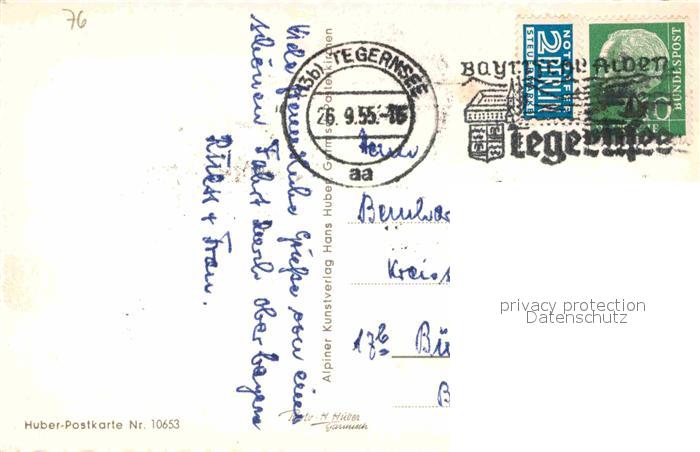 76
Viele herzliche Grüße von einer
schönen Fahrt durch Oberbayern
+ Frau.
Alpiner Kunstverlag Hans Huber, Garmisch-Partenkirchen
(13b) TEGERNSEE
26.9.55.-16
aa
Bayrische Alpen
Tegernsee
NOTOPFER
2 BERLIN
STEUERMARKE
DEUTSCHE BUNDESPOST
10
Herrn
Bernhar
Kreis
17b Bü
B
privacy protection
Datenschutz
Huber-Postkarte Nr. 10653
Photo-H. Huber
Garmisch